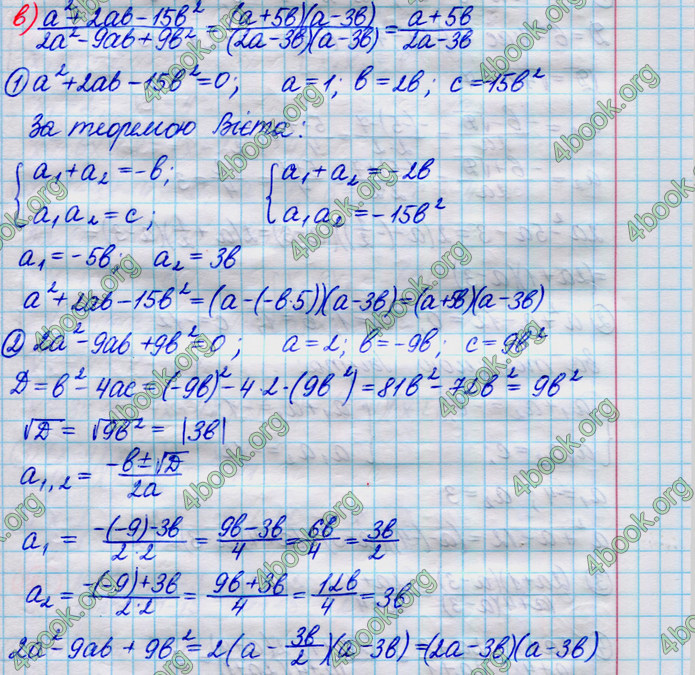 в) (a² + 2ab - 15b²)/(2a² - 9ab + 9b²) = ((a + 5b)(a - 3b))/((2a - 3b)(a - 3b)) = (a + 5b)/(2a - 3b)
① a² + 2ab - 15b² = 0; a = 1; b = 2b; c = -15b²
За теоремою Вієта:
{ a₁ + a₂ = -b; { a₁ + a₂ = -2b
a₁a₂ = c; a₁a₂ = -15b²
a₁ = -5b; a₂ = 3b
a² + 2ab - 15b² = (a - (-b·5))(a - 3b) = (a + 5b)(a - 3b)
② 2a² - 9ab + 9b² = 0; a = 2; b = -9b; c = 9b²
Д = b² - 4ac = (-9b)² - 4·2·(9b²) = 81b² - 72b² = 9b²
√Д = √9b² = |3b|
a₁,₂ = (-b ± √Д)/(2a)
a₁ = (-(-9) - 3b)/(2·2) = (9b - 3b)/4 = 6b/4 = 3b/2
a₂ = (-(-9) + 3b)/(2·2) = (9b + 3b)/4 = 12b/4 = 3b
2a² - 9ab + 9b² = 2(a - 3b/2)(a - 3b) = (2a - 3b)(a - 3b)
4book.org